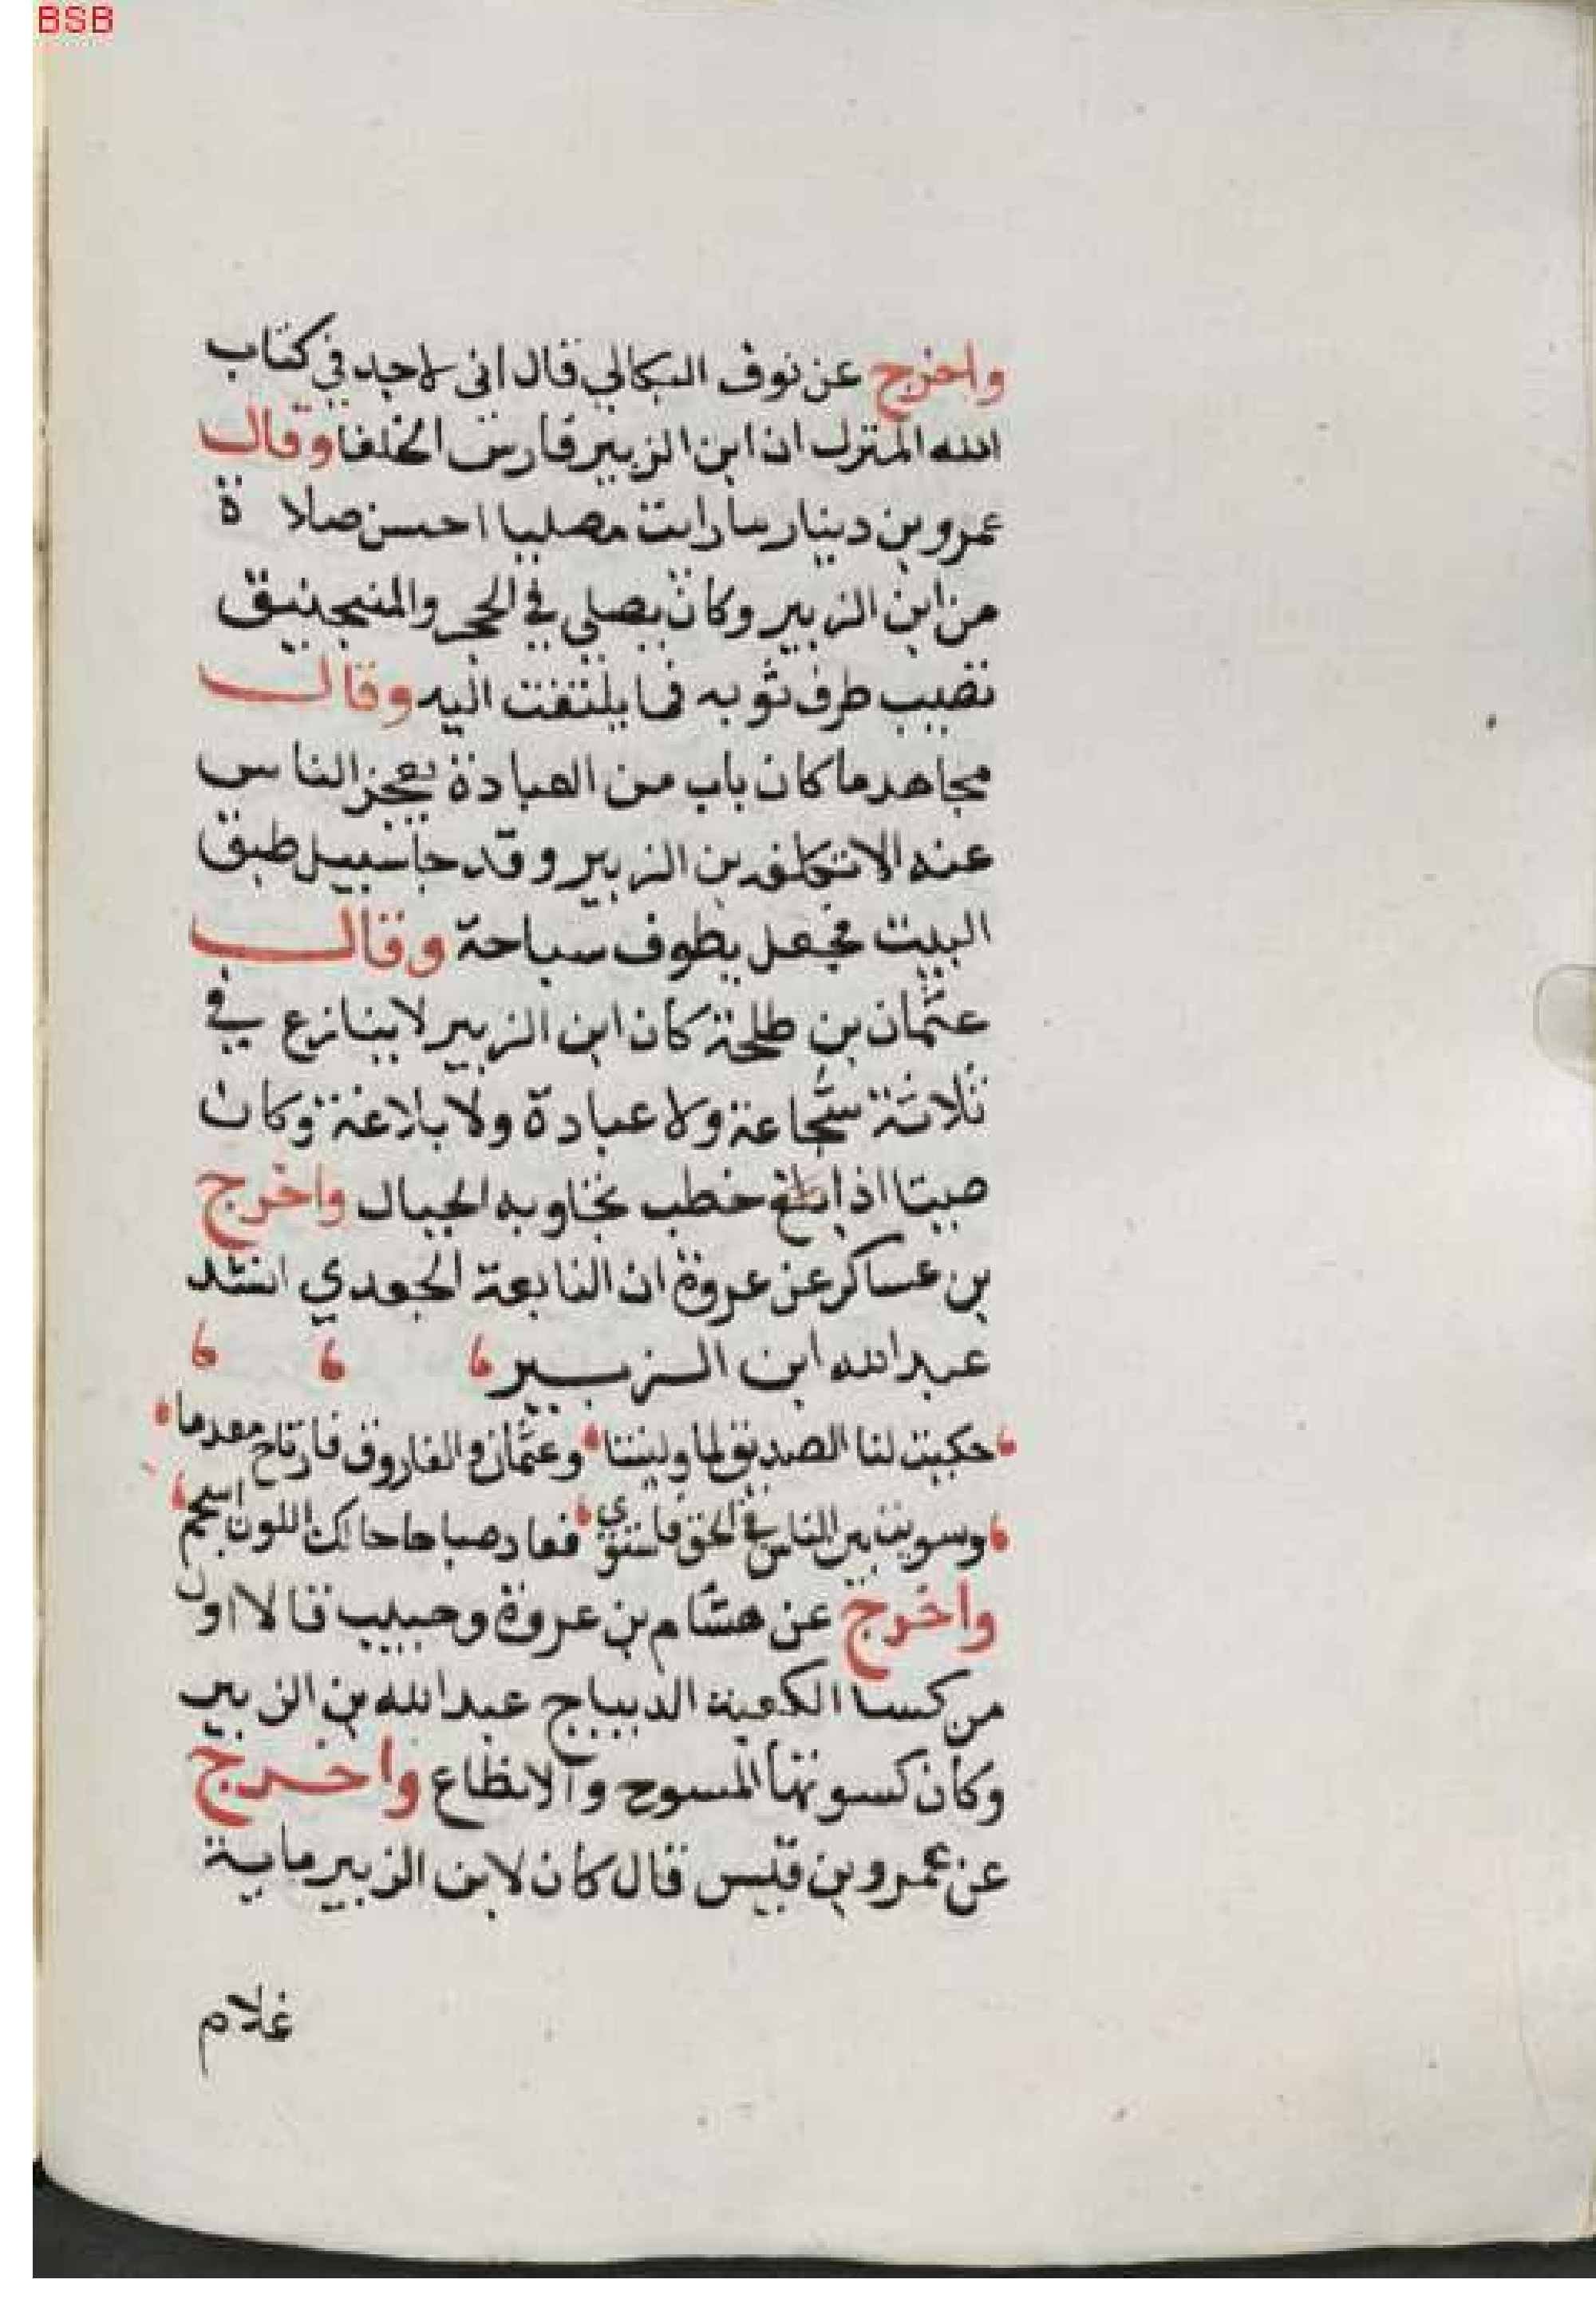 BSB
واخرج عن نوف البكالي قال اني لاجد في كتاب
الله المنزل ان ابن الزبير فارس الخلفا وقال
عمرو بن دينار ما رايت مصليا احسن صلاة
من ابن الزبير وكان يصلي في الحجر والمنجنيق
تصيب طرف ثوبه فما يلتفت اليه وقال
مجاهد ما كان باب من العبادة يعجز الناس
عنه الا تكلفه بن الزبير وقد جا سيل طبق
البيت فجعل يطوف سباحة وقال
عثمان بن طلحة كان ابن الزبير لا ينازع في
ثلاثة شجاعة ولا عبادة ولا بلاغة وكان
صيتا اذا خطب تجاوبه الجبال واخرج
بن عساكر عن عروة ان النابغة الجعدي انشد
عبد الله ابن الزبير
حكيت لنا الصديق لما وليتنا وعثمان والفاروق فارتاح معدما
وسويت بين الناس في الحق فاستوي فعاد صباحا حالك اللون اسحم
واخرج عن هشام بن عروة وحبيب قالا اول
من كسا الكعبة الديباج عبد الله بن الزبير
وكان كسوتها المسوح والانطاع واخرج
عن عمرو بن قيس قال كان لابن الزبير ماية
غلام